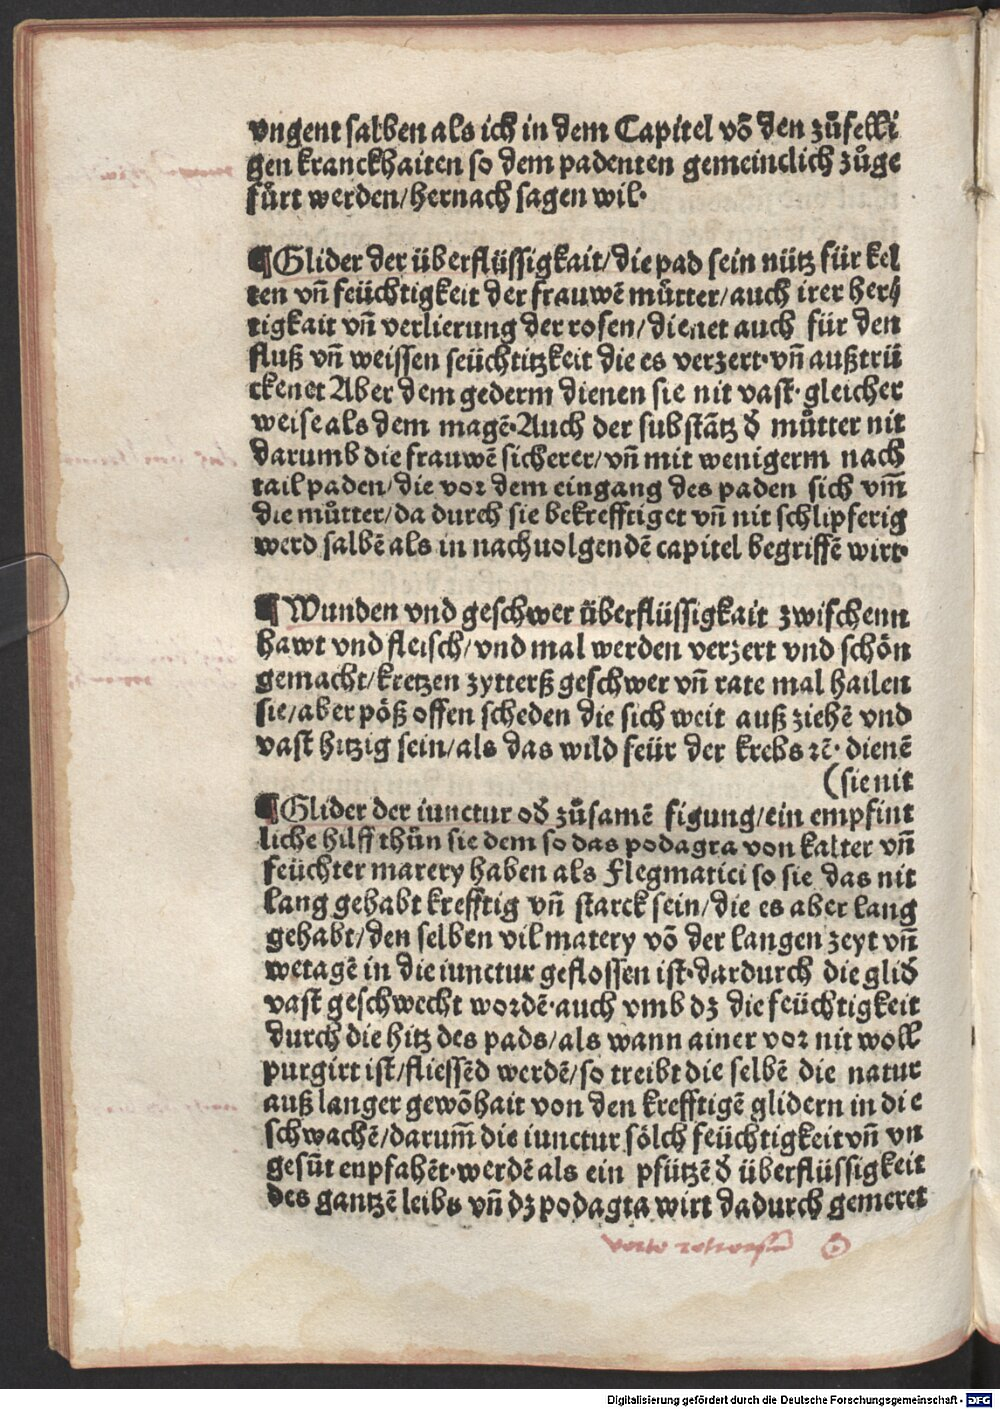 vngent salben als ich in dem Capitel võ den zůfelli
gen kranckhaiten so dem padenten gemeinclich zůge
fůrt werden/hernach sagen wil·
¶Glider der überflüssigkait/die pad sein nütz für kel
ten vñ feüchtigkeit der frauwẽ můtter/auch irer her
tigkait vñ verlierung der rosen/dienet auch für den
fluß vñ weissen feüchtitzkeit die es verzert·vñ außtrü
ckenet Aber dem gederm dienen sie nit vast·gleicher
weise als dem magẽ·Auch der substãtz ď můtter nit
darumb die frauwẽ sicherer/vñ mit wenigerm nach
tail paden/die vor dem eingang des paden sich vm̃
die můtter/da durch sie bekrefftiget vñ nit schlipferig
werd salbẽ als in nachuolgendẽ capitel begriffẽ wirt·
¶Wunden vnd geschwer überflüssigkait zwischenn
hawt vnd fleisch/vnd mal werden verzert vnd schön
gemacht/kretzen zytterß geschwer vñ rate mal hailen
sie/aber pöß offen scheden die sich weit auß ziehẽ vnd
vast hitzig sein/als das wild feür der krebs ꝛc̃· dienẽ
(sie nit
¶Glider der iunctur oď zůsamẽ figung/ein empfint
liche hilff thůn sie dem so das podagra von kalter vñ
feüchter matery haben als Flegmatici so sie das nit
lang gehabt krefftig vñ starck sein/die es aber lang
gehabt/den selben vil matery võ der langen zeyt vñ
wetagẽ in die iunctur geflossen ist·dardurch die gliď
vast geschwecht wordẽ·auch vmb dz die feüchtigkeit
durch die hitz des pads/als wann ainer vor nit woll
purgirt ist/fliessẽd werdẽ/so treibt die selbẽ die natur
auß langer gewõhait von den krefftigẽ glidern in die
schwachẽ/darum̃ die iunctur sölch feüchtigkeit vñ vn
gesũt enpfahẽt·werdẽ als ein pfützẽ ď überflüssigkeit
des gantzẽ leibs vñ dz podagra wirt dadurch gemeret
Digitalisierung gefördert durch die Deutsche Forschungsgemeinschaft - DFG